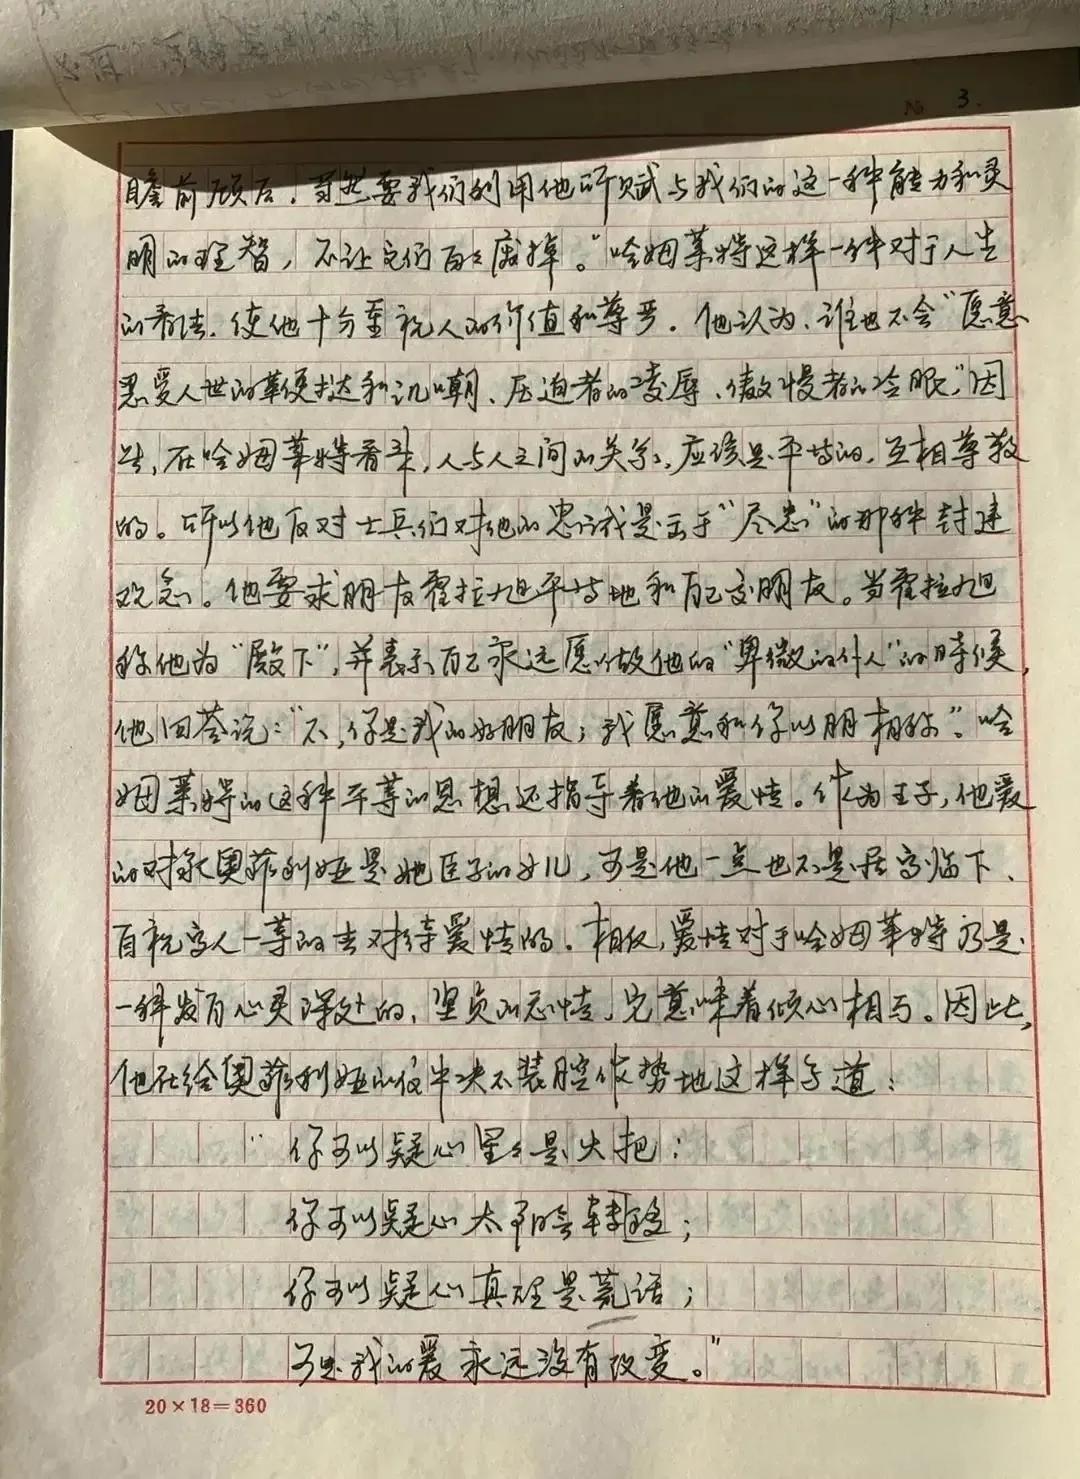 No 3.
瞻前顾后,当然要我们利用他所赋与我们的这一种能力和灵
明的理智,不让它们白白废掉。"哈姆莱特这样一种对于人生
的看法,使他十分重视人的价值和尊严。他认为,谁也不会"愿意
忍受人世的鞭挞和讥嘲、压迫者的凌辱、傲慢者的冷眼",因
此,在哈姆莱特看来,人与人之间的关系,应该是平等的,互相尊敬
的。所以他反对士兵们对他的忠诚是出于"尽忠"的那种封建
观念。他要求朋友霍拉旭平等地和自己交朋友。当霍拉旭
称他为"殿下",并表示自己永远愿做他的"卑微的仆人"的时候,
他回答说:"不,你是我的好朋友;我愿意和你以朋相称"。哈
姆莱特的这种平等的思想还指导着他的爱情。作为王子,他爱
的对象奥菲利娅是她臣子的女儿,可是他一点也不是居高临下、
自视高人一等的去对待爱情的。相反,爱情对于哈姆莱特乃是
一种发自心灵深处的,坚贞的感情,它意味着倾心相与。因此,
他在给奥菲利娅的信中决不装腔作势地这样写道:
"你可以疑心星星是火把;
你可以疑心太阳会转移;
你可以疑心真理是荒话;
可是我的爱永远没有改变。"
20×18=360